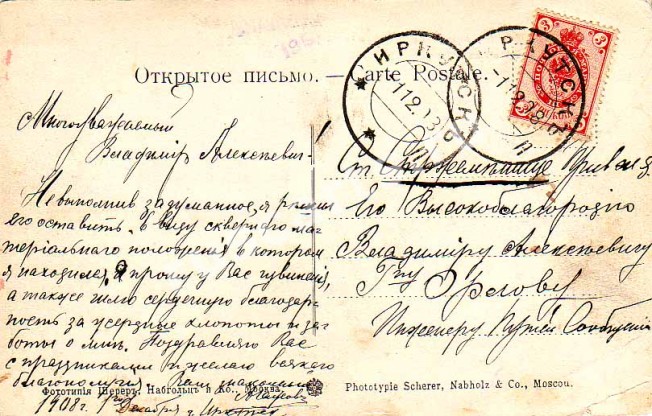 Открытое письмо. — Carte Postale.
ИРКУТСКЪ
1 12 08
ИРКУТСКЪ
1 12 08
3
3
Многоуважаемый
Владиміръ Алексѣевичъ
Невыполнивъ задуманное, я рѣшилъ
его оставить. въ виду сквернаго ма-
теріальнаго положенія въ которомъ
я находился, прошу у Васъ извиненія,
а также шлю сердечную благодар-
ность за усердные хлопоты и за-
боты о мнѣ. Поздравляю Васъ
съ праздникомъ и желаю всякаго
благополучія. Вашъ знакомый
1908 г. 1го Декабря г. Иркутскъ
Ст.
Его Высокоблагородію
Владиміру Алексѣевичу
Гну Орлову
Инженеру Путей Сообщенія
Фототипія Шереръ, Набгольцъ и Ко. Москва.
Phototypie Scherer, Nabholz & Co., Moscou.